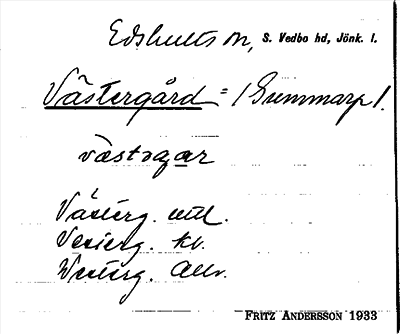 Edshults sn, S. Vedbo hd, Jönk. l.
Västergård = / Gummarp /.
västrgar
Västerg. utd.
Vesterg. kv.
Westerg. Allv.
FRITZ ANDERSSON 1933